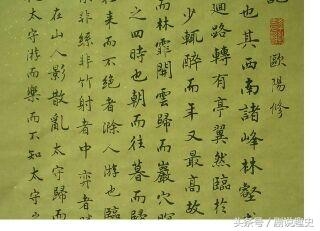 記
歐陽修
也其西南諸峰林壑
迴路轉有亭翼然臨於
少輒醉而年又最高故
而林霏開雲歸而巖穴
之四時也朝而往暮而歸
來而不絕者滁人遊也臨
非絲非竹射者中弈者
在山人影散亂太守歸而
太守遊而樂而不知太守
头条号 / 剧说趣史